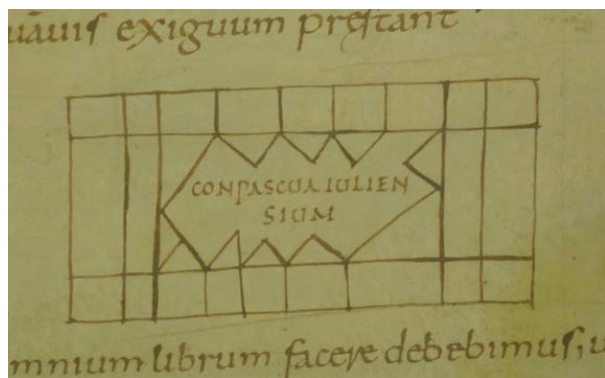 uavis exiguum prestant
CONPASCUA IULIEN
SIUM
mnium librum facere debebimus; u